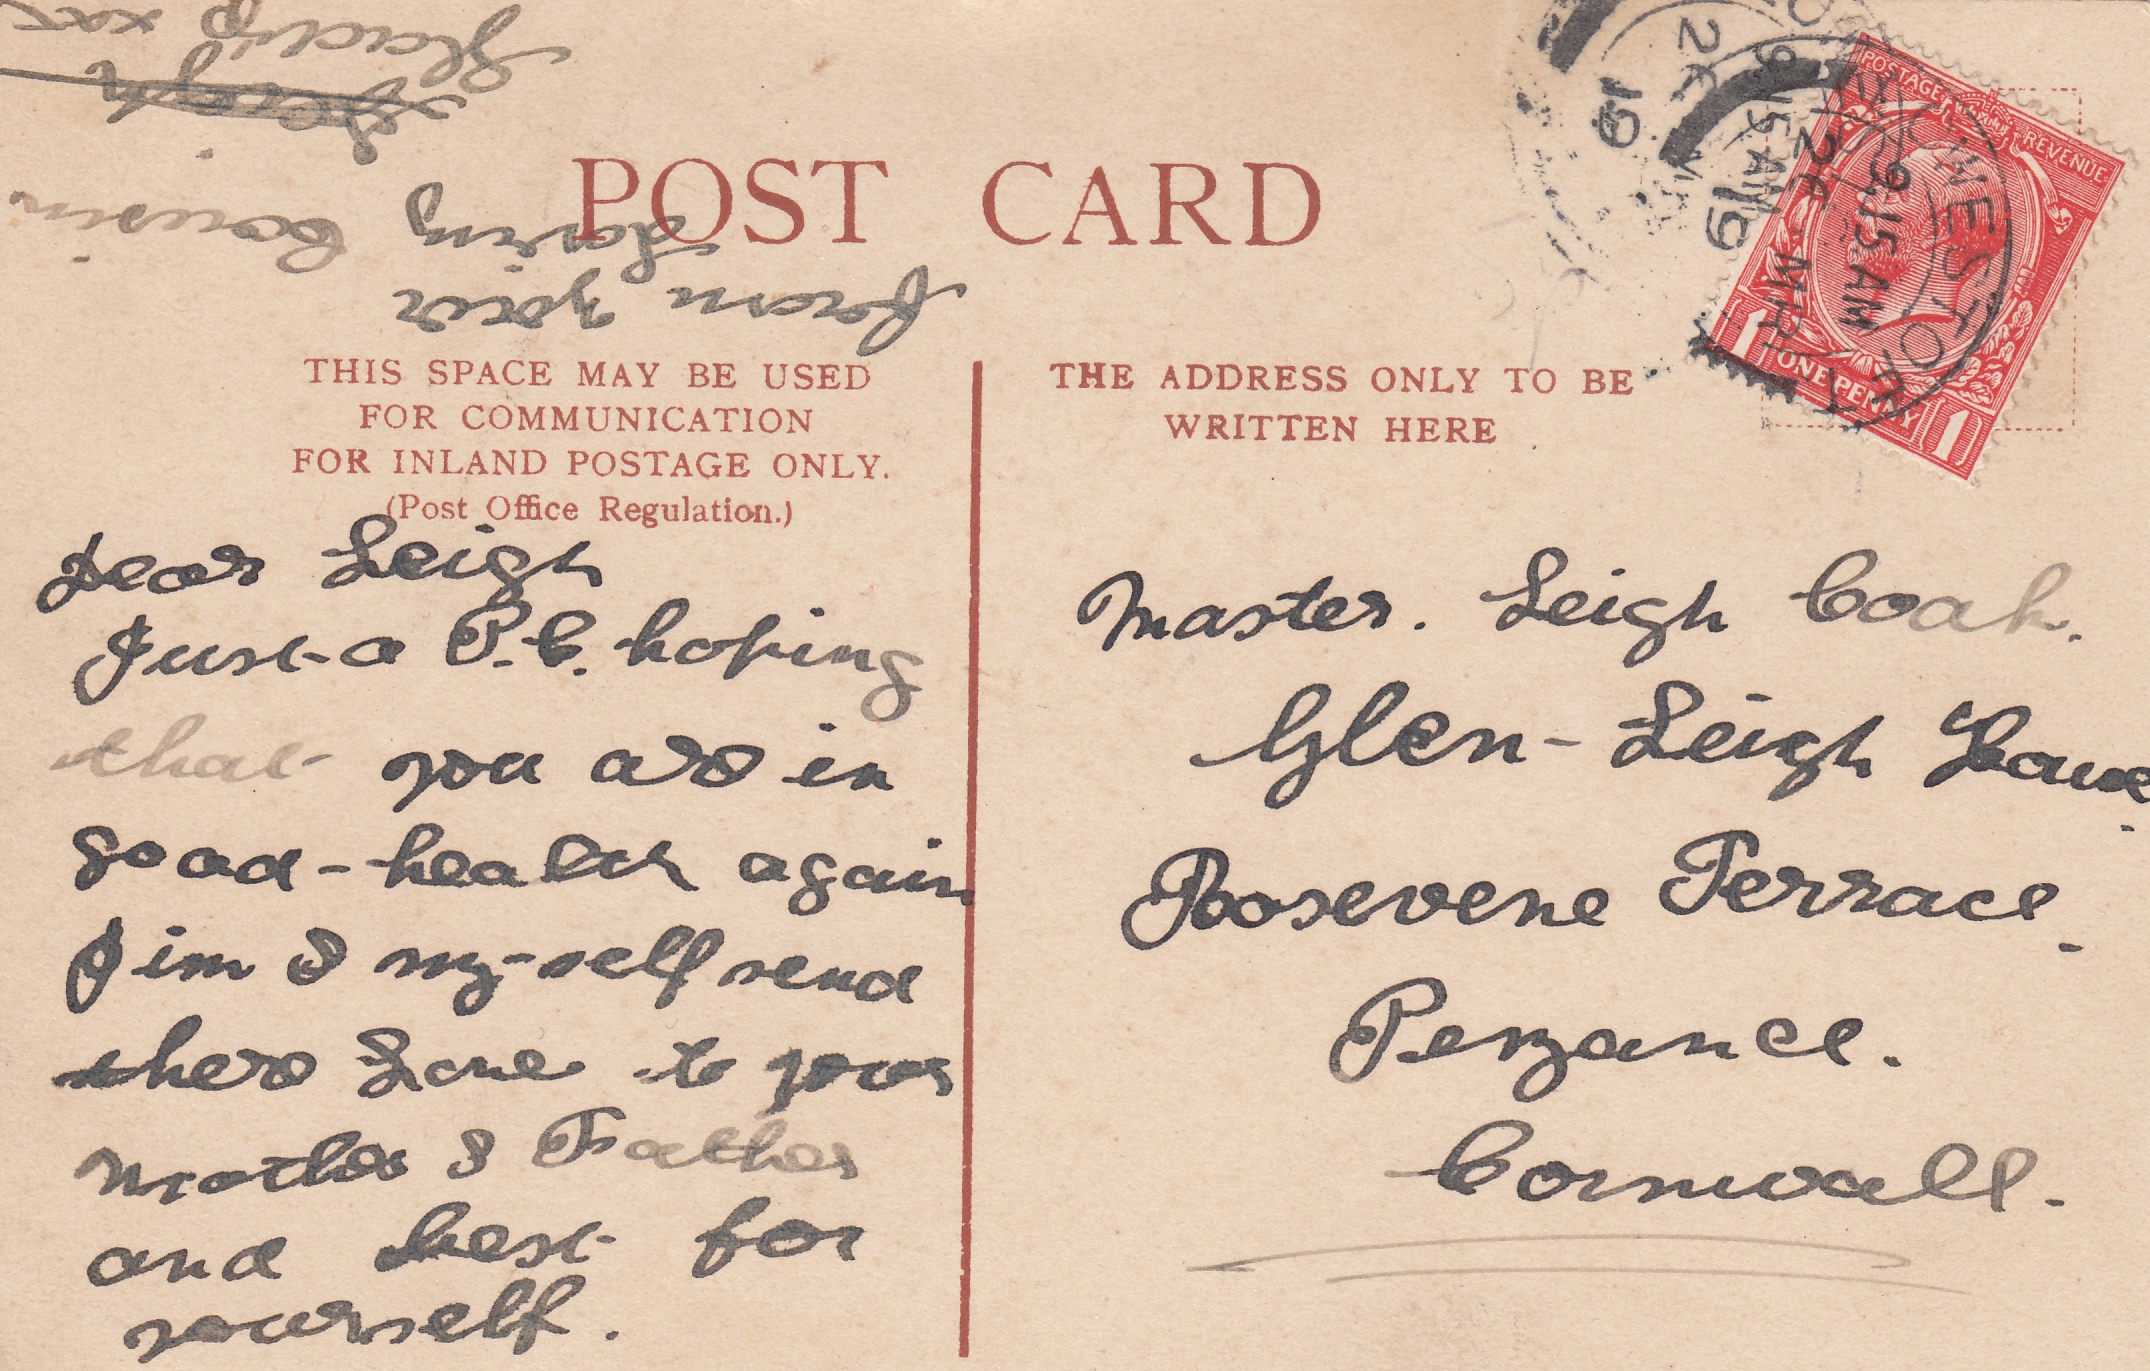 POST CARD
THIS SPACE MAY BE USED
FOR COMMUNICATION
FOR INLAND POSTAGE ONLY.
(Post Office Regulation.)
THE ADDRESS ONLY TO BE
WRITTEN HERE
POSTAGE REVENUE
1 ONE PENNY 1
9.15 AM
2 MR
19
Dear Leigh
Just a P.C. hoping
that you are in
good-health again
Jim & my-self send
there Love to your
Mother & Father
and best for
yourself.
from your
loving
Cousin
Leigh
Gladys xxx
Master. Leigh Coak.
Glen-Leigh House
Rosevene Terrace.
Penzance.
Cornwall.